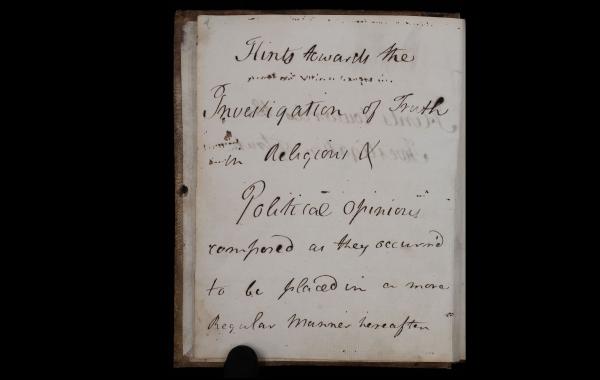 Hints towards the
Investigation of Truth
in Religious &
Political Opinions
composed as they occurr'd
to be placed in a more
Regular Manner hereafter